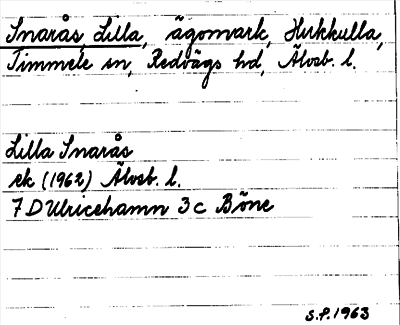 Snarås, Lilla, ägomark, Hukkulla,
Timmele sn, Redvägs hd, Älvsb. l.
Lilla Snarås
ek (1962) Älvsb. l.
7D Ulricehamn 3c Böne
S.P. 1963